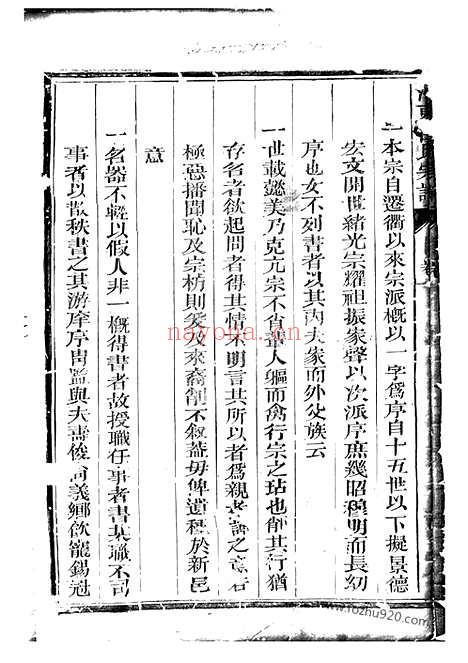 氏家譜 卷
一本宗自遷衢以來宗派概以一字爲序自十五世以下擬景德
宏文開世緒光宗耀祖振家聲以次派序庶幾昭穆明而長幼
序也女不列書者以其內夫家而外父族云
一世載懿美乃克亢宗不肖人軀而禽行宗之玷也削其行猶
存名者欲起問者得其情不明言其所以者爲親者諱之意若
極惡播聞恥及宗祊則及來裔削不敘蓋毋俾遺種於新邑
意
一名器不輕以假人非一概得書者故授職任事者書某職不司
事者以散秩書之其游庠序冑監與夫壽俊尚義鄉飲寵錫冠
nayona.cn
www.fozhu920.com